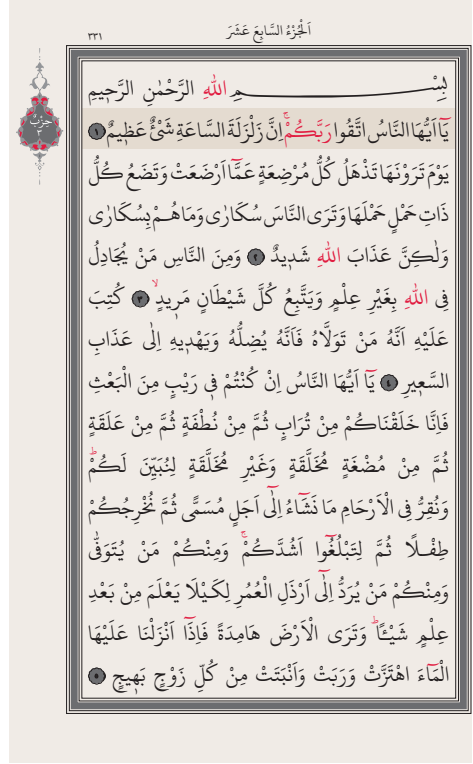 اَلْجُزْءُ السَّابِعَ عَشَرَ
٣٣١
حِزْبْ
٣
بِسْــــــــــمِ اللهِ الرَّحْمٰنِ الرَّحِيمِ
يَٓا اَيُّهَا النَّاسُ اتَّقُوا رَبَّكُمْۚ اِنَّ زَلْزَلَةَ السَّاعَةِ شَيْءٌ عَظِيمٌ ١
يَوْمَ تَرَوْنَهَا تَذْهَلُ كُلُّ مُرْضِعَةٍ عَمَّٓا اَرْضَعَتْ وَتَضَعُ كُلُّ
ذَاتِ حَمْلٍ حَمْلَهَا وَتَرَى النَّاسَ سُكَارٰى وَمَا هُمْ بِسُكَارٰى
وَلٰكِنَّ عَذَابَ اللهِ شَدِيدٌ ٢ وَمِنَ النَّاسِ مَنْ يُجَادِلُ
فِي اللهِ بِغَيْرِ عِلْمٍ وَيَتَّبِعُ كُلَّ شَيْطَانٍ مَرِيدٍۙ ٣ كُتِبَ
عَلَيْهِ اَنَّهُ مَنْ تَوَلَّاهُ فَاَنَّهُ يُضِلُّهُ وَيَهْدِيهِ اِلٰى عَذَابِ
السَّعِيرِ ٤ يَٓا اَيُّهَا النَّاسُ اِنْ كُنْتُمْ فِي رَيْبٍ مِنَ الْبَعْثِ
فَاِنَّا خَلَقْنَاكُمْ مِنْ تُرَابٍ ثُمَّ مِنْ نُطْفَةٍ ثُمَّ مِنْ عَلَقَةٍ
ثُمَّ مِنْ مُضْغَةٍ مُخَلَّقَةٍ وَغَيْرِ مُخَلَّقَةٍ لِنُبَيِّنَ لَكُمْۜ
وَنُقِرُّ فِي الْاَرْحَامِ مَا نَشَٓاءُ اِلٰٓى اَجَلٍ مُسَمًّى ثُمَّ نُخْرِجُكُمْ
طِفْلًا ثُمَّ لِتَبْلُغُٓوا اَشُدَّكُمْۚ وَمِنْكُمْ مَنْ يُتَوَفّٰى
وَمِنْكُمْ مَنْ يُرَدُّ اِلٰٓى اَرْذَلِ الْعُمُرِ لِكَيْلَا يَعْلَمَ مِنْ بَعْدِ
عِلْمٍ شَيْـًٔاۜ وَتَرَى الْاَرْضَ هَامِدَةً فَاِذَٓا اَنْزَلْنَا عَلَيْهَا
الْمَٓاءَ اهْتَزَّتْ وَرَبَتْ وَاَنْبَتَتْ مِنْ كُلِّ زَوْجٍ بَهِيجٍ ٥